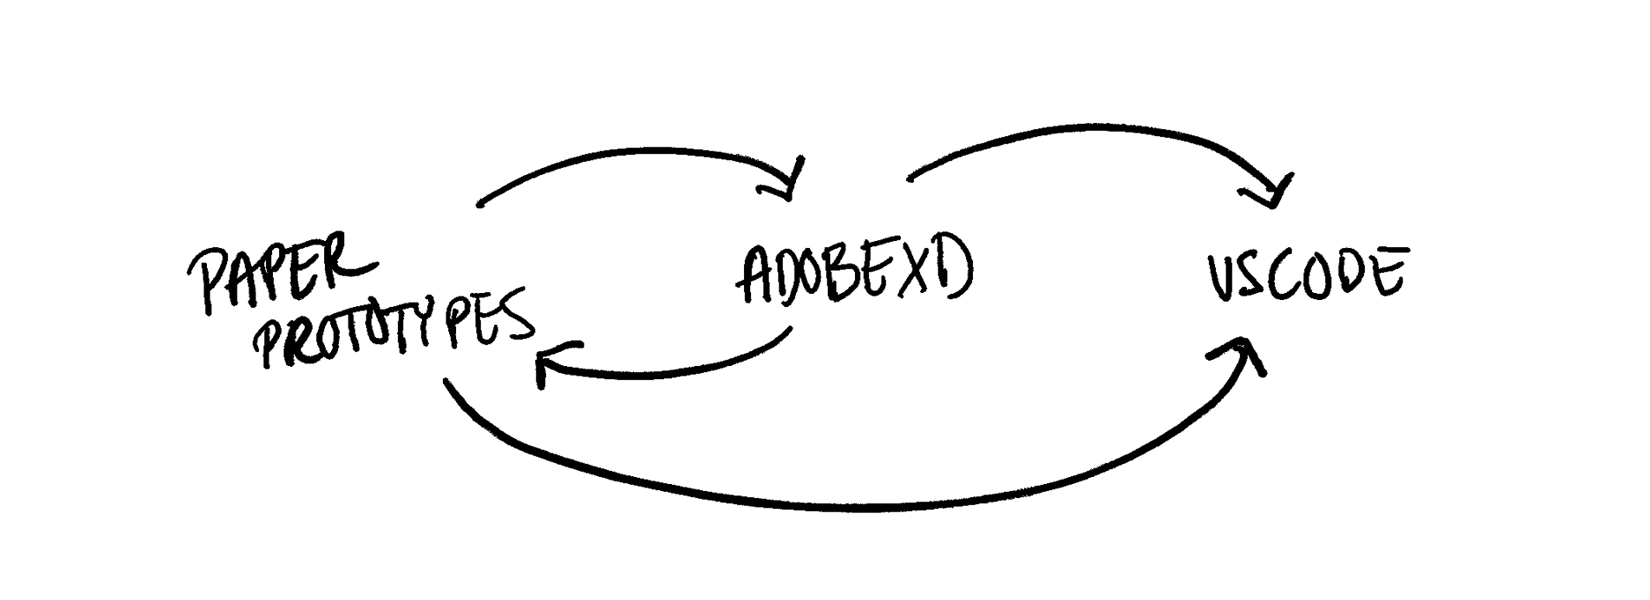 PAPER
PROTOTYPES
ADOBEXD
VSCODE